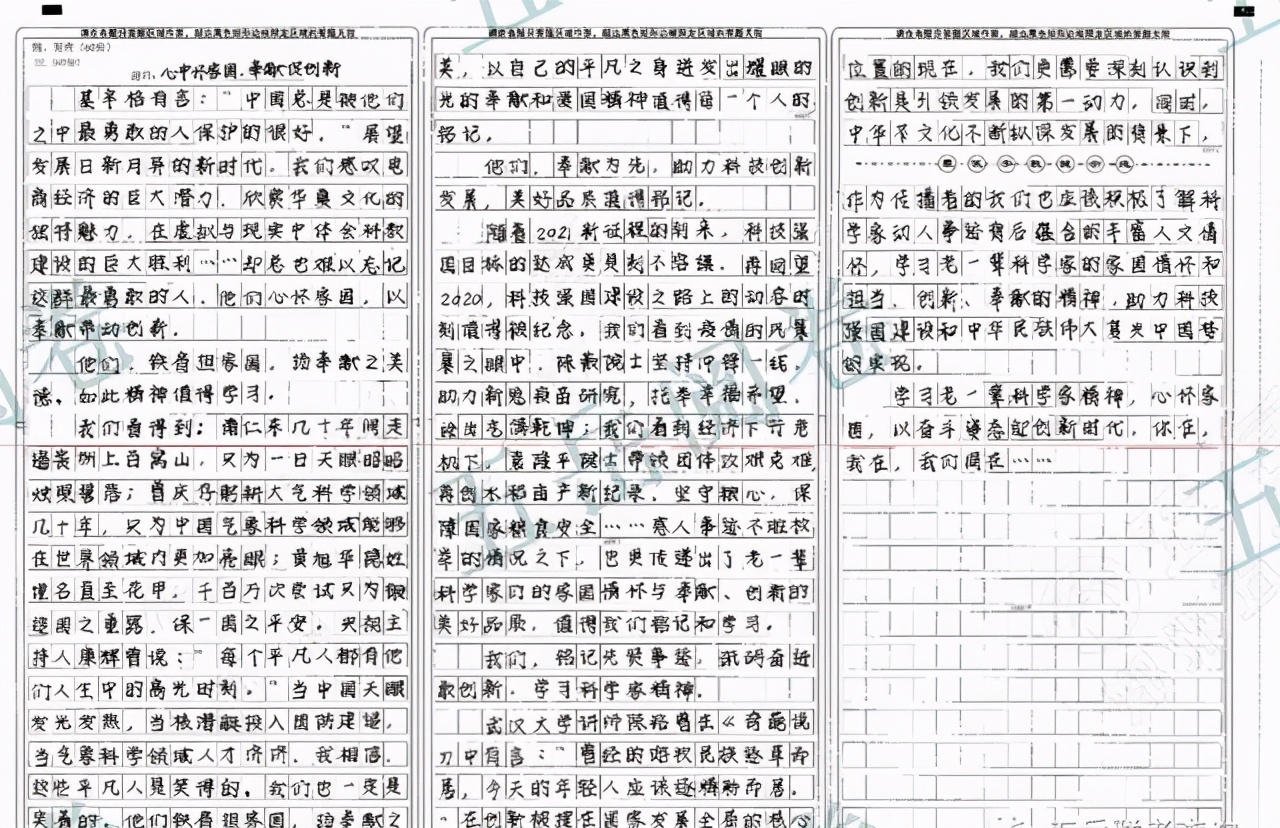 请在各题目的答题区域内作答，超出黑色矩形边框限定区域的答案无效
四、写作（60分）
题目：心中怀家国，奉献促创新
基辛格有言：“中国总是被他们
之中最勇敢的人保护的很好。”展望
发展日新月异的新时代。我们感叹电
商经济的巨大潜力，欣赏华夏文化的
独特魅力，在虚拟与现实中体会科教
建设的巨大胜利……却总也难以忘记
这群最勇敢的人。他们心怀家国，以
奉献带动创新。
他们，铁肩担家国，扬奉献之美
德，如此精神值得学习。
我们看得到：南仁东几十年间走
遍贵州上百离山，只为一日天眼昭昭
炫照碧落；曾庆存躬耕大气科学领域
几十年，只为中国气象科学领域能够
在世界领域内更加亮眼；黄旭华隐姓
埋名直至花甲，千百万次尝试只为银
造国之重器，保一国之平安。央视主
持人康辉曾说：“每个平凡人都有他
们人生中的高光时刻。”当中国天眼
发光发热，当核潜艇投入国防建设，
当气象科学领域人才济济，我相信，
这些平凡人是笑得的，我们也一定是
笑着的。他们铁肩担家国，扬奉献之
请在各题目的答题区域内作答，超出黑色矩形边框限定区域的答案无效
美，以自己的平凡之身迸发出耀眼的
光的奉献和爱国精神值得每一个人的
铭记。
他们，奉献为先，助力科技创新
发展，美好品质值得铭记。
随着2021新征程的到来，科技强
国目标的达成更是刻不容缓。再回望
2020，科技强国建设之路上的动容时
刻值得被纪念，我们看到疫情的风暴
暴之眼中，陈薇院士坚持冲锋一线，
助力新冠疫苗研究，托举幸福希望，
诠出克惧乾坤；我们看到经济下行危
机下，袁隆平院士带领团体攻难克难，
再创水稻亩产新纪录，坚守粮心，保
障国家粮食安全……感人事迹不胜枚
举的情况之下，也更传递出了老一辈
科学家们的家国情怀与奉献、创新的
美好品质，值得我们铭记和学习。
我们，铭记先贤事迹，砥砺奋进
敢创新，学习科学家精神。
武汉大学讲师陈铭曾在《奇葩说
》中有言：“曾经的好汉民族整耳而
居，今天的年轻人应该趁精神而居。
”在创新被摆在国家发展全局的核心
请在各题目的答题区域内作答，超出黑色矩形边框限定区域的答案无效
位置的现在，我们更需要深刻认识到
创新是引领发展的第一动力。同时，
中华不文化不断纵深发展的背景下，
作为传播者的我们也应该积极了解科
学家动人事迹背后蕴含的丰富人文情
怀，学习老一辈科学家的家国情怀和
担当、创新、奉献的精神，助力科技
强国建设和中华民族伟大复兴中国梦
的实现。
学习老一辈科学家精神，心怀家
国，以奋斗姿态起创新时代，你在，
我在，我们俱在……
五岳阅卷
五岳阅卷